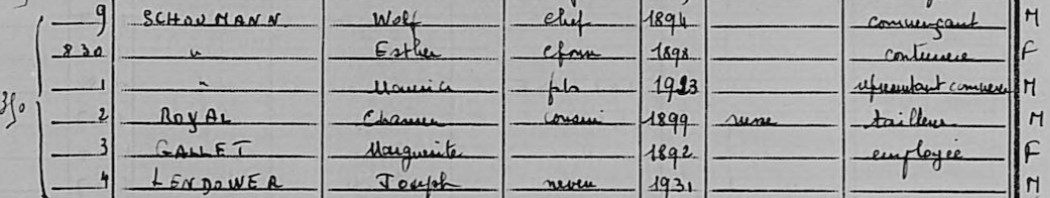 9 SCHOUMANN Wolf chef 1894 commerçant M
830 " Esther épouse 1898 couturière F
1 " Maurice fils 1923 représentant commerce M
350 2 ROYAL cousin 1899 russe tailleur M
3 GALLET Marguerite 1892 employée F
4 LENDOWER Joseph neveu 1931 M